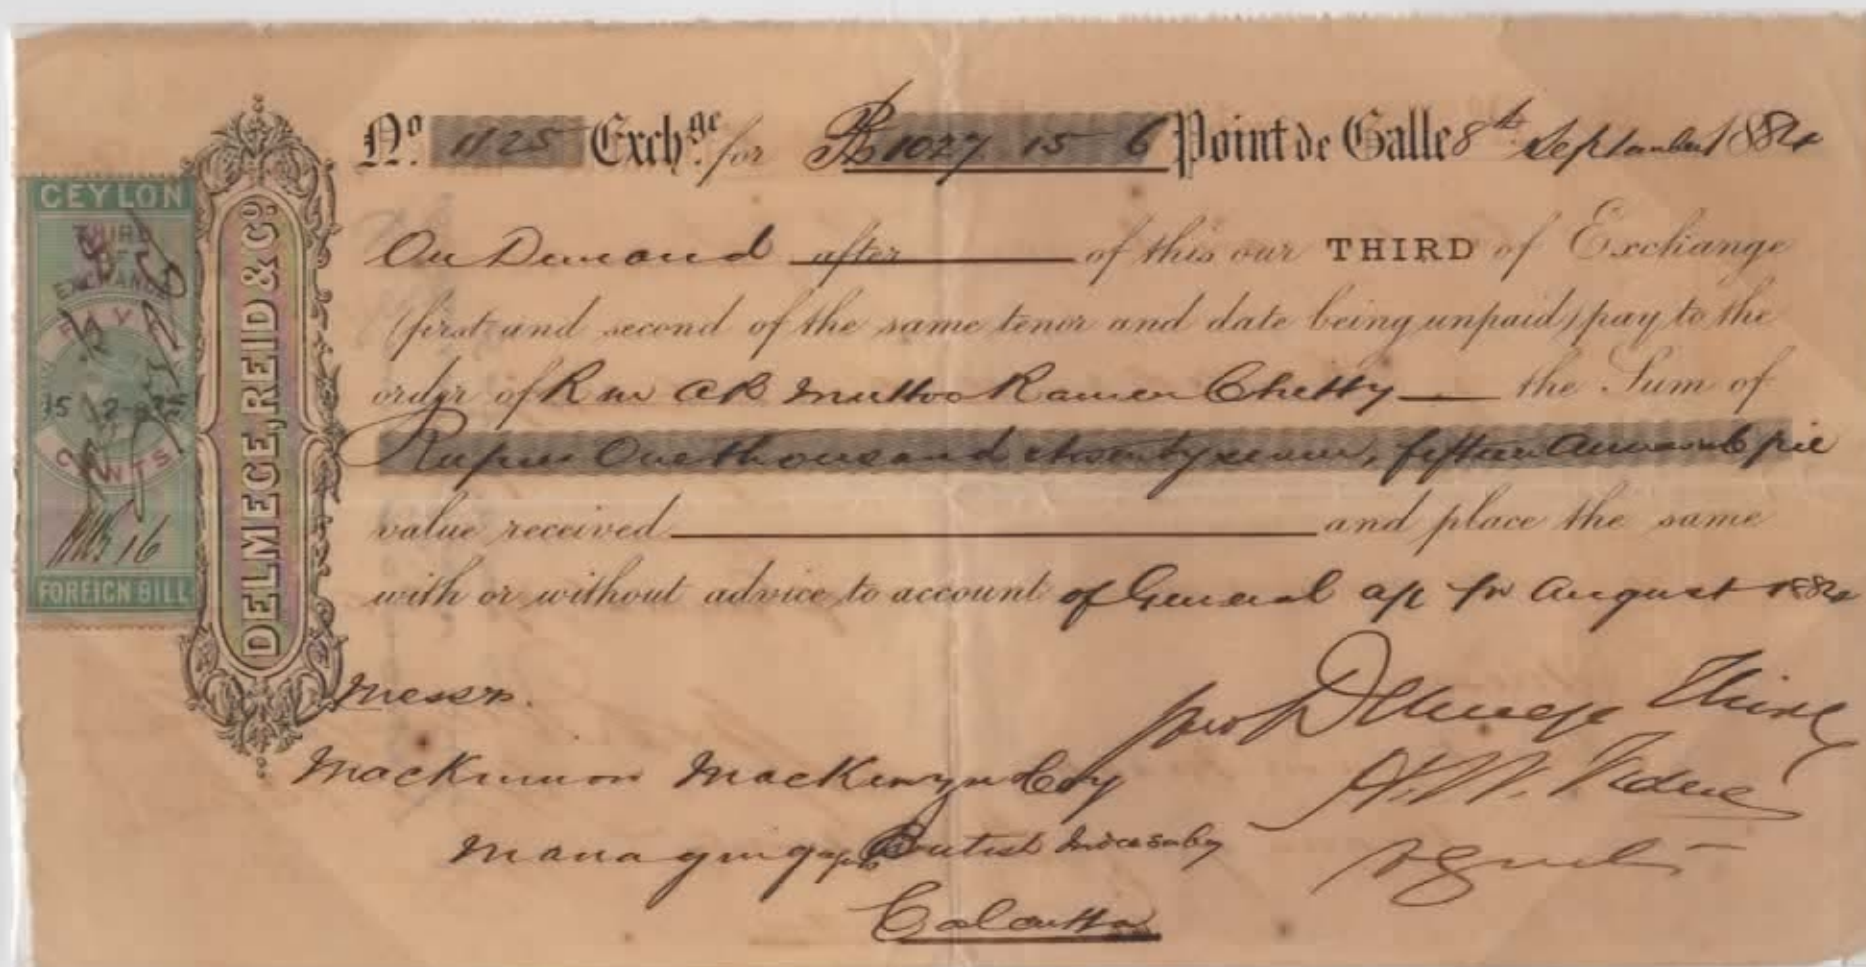 CEYLON
THIRD
OF
EXCHANGE
CENTS
FOREIGN BILL
DELMEGE, REID & Co.
No. 1125 Exchge. for Rs 1027 15 6 Point de Galle 8th September 1884
On Demand after of this our THIRD of Exchange
(first and second of the same tenor and date being unpaid) pay to the
order of R M AR Muttoo Ramen Chetty the Sum of
Rupees One thousand & twenty seven, fifteen annas & 6 pie
value received and place the same
with or without advice to account of General a/c for August 1884
Messrs.
Mackinnon Mackenzie & Coy
Managing British India
Calcutta
Delmege
Agents